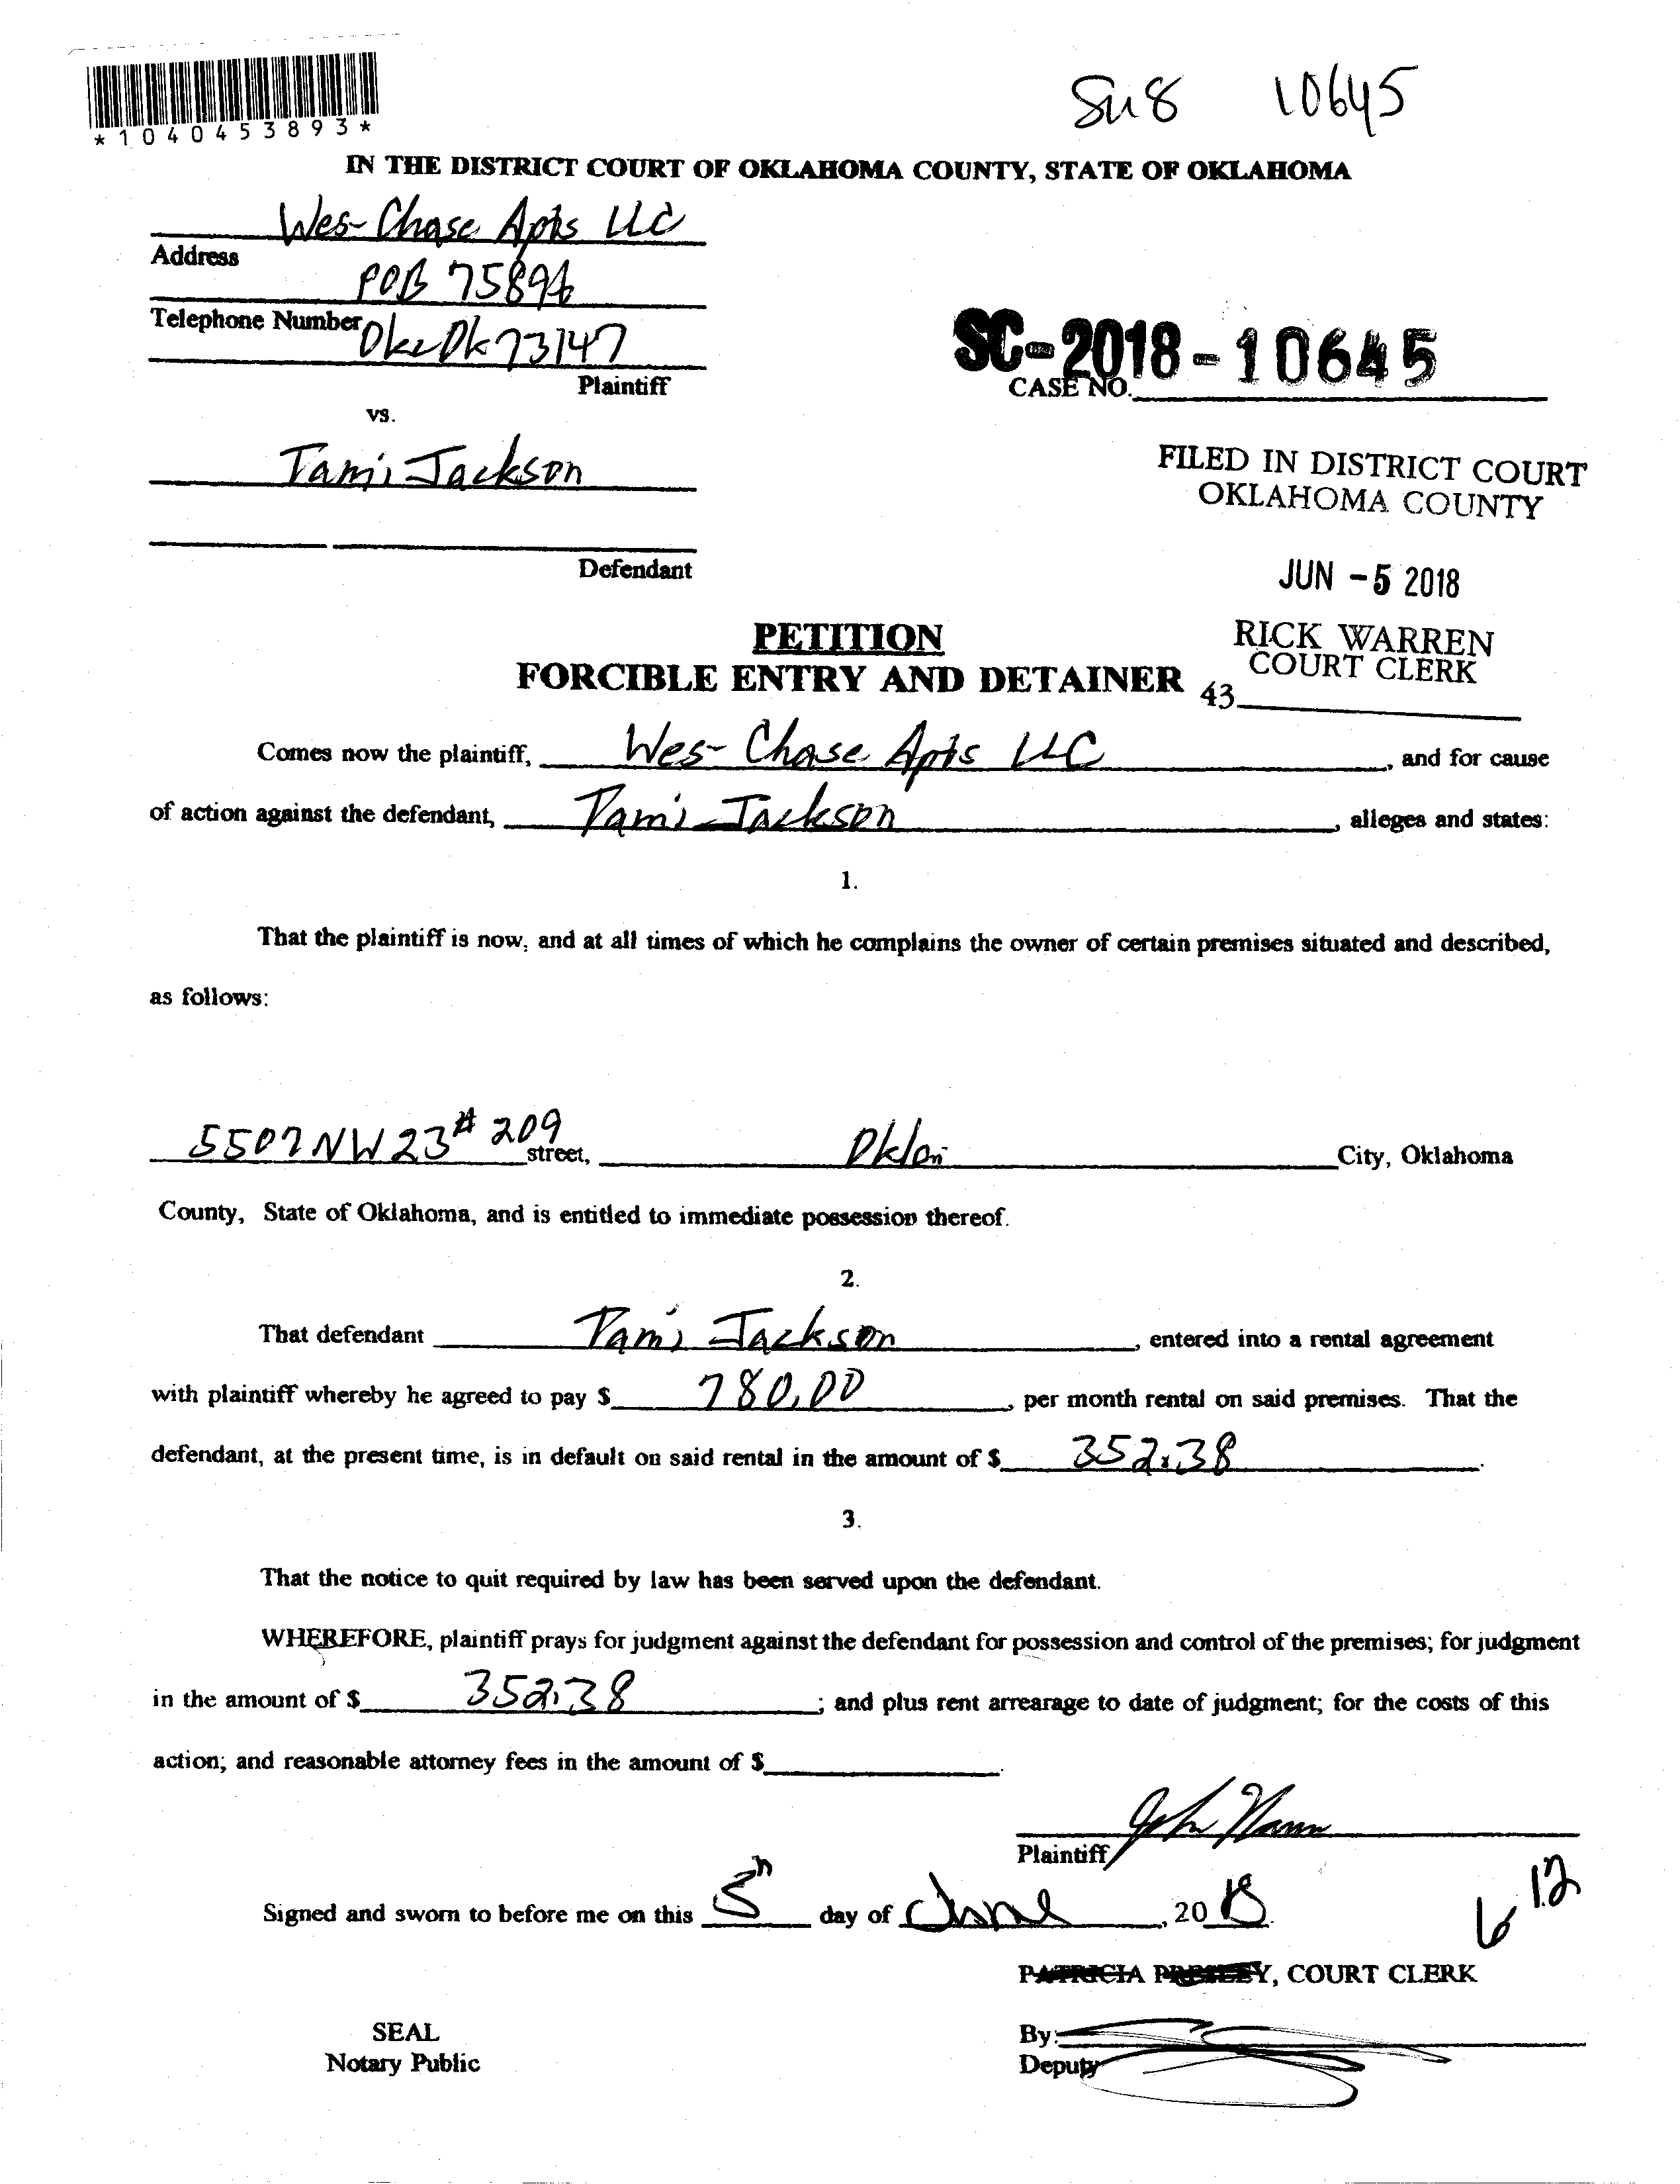 *1040453893*
10645
IN THE DISTRICT COURT OF OKLAHOMA COUNTY, STATE OF OKLAHOMA
Wes-Chase Apts LLC
Address
POB 75894
Telephone Number
Okc Ok 73147
Plaintiff
SC-2018-10645
CASE NO.
vs.
Tami Jackson
Defendant
FILED IN DISTRICT COURT
OKLAHOMA COUNTY
JUN -5 2018
RICK WARREN
COURT CLERK
43
PETITION
FORCIBLE ENTRY AND DETAINER
Comes now the plaintiff, Wes-Chase Apts LLC, and for cause
of action against the defendant, Tami Jackson, alleges and states:
1.
That the plaintiff is now, and at all times of which he complains the owner of certain premises situated and described,
as follows:
5507 NW 23 # 209 street, City, Oklahoma
County, State of Oklahoma, and is entitled to immediate possession thereof.
2.
That defendant Tami Jackson, entered into a rental agreement
with plaintiff whereby he agreed to pay $ 780.00, per month rental on said premises. That the
defendant, at the present time, is in default on said rental in the amount of $ 352.38.
3.
That the notice to quit required by law has been served upon the defendant.
WHEREFORE, plaintiff prays for judgment against the defendant for possession and control of the premises; for judgment
in the amount of $ 352.38; and plus rent arrearage to date of judgment; for the costs of this
action; and reasonable attorney fees in the amount of $.
Plaintiff
Signed and sworn to before me on this 5th day of June, 2018.
6 12
PATRICIA PRESLEY, COURT CLERK
SEAL
Notary Public
By:
Deputy